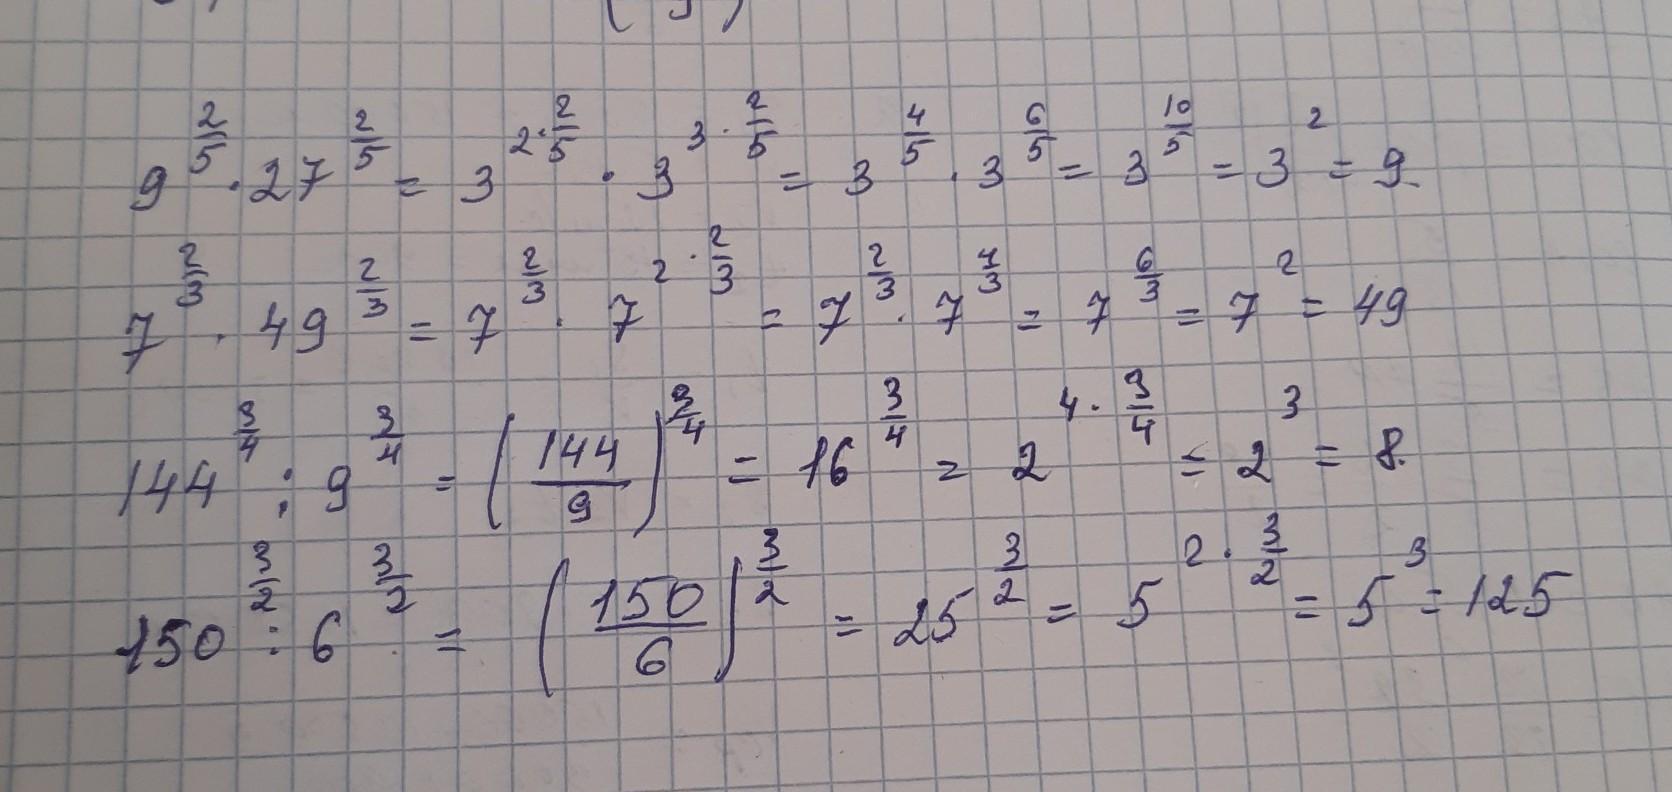 9^{\frac{2}{5}} \cdot 27^{\frac{2}{5}} = 3^{2 \cdot \frac{2}{5}} \cdot 3^{3 \cdot \frac{2}{5}} = 3^{\frac{4}{5}} \cdot 3^{\frac{6}{5}} = 3^{\frac{10}{5}} = 3^2 = 9.
7^{\frac{2}{3}} \cdot 49^{\frac{2}{3}} = 7^{\frac{2}{3}} \cdot 7^{2 \cdot \frac{2}{3}} = 7^{\frac{2}{3}} \cdot 7^{\frac{4}{3}} = 7^{\frac{6}{3}} = 7^2 = 49
144^{\frac{3}{4}} : 9^{\frac{3}{4}} = \left(\frac{144}{9}\right)^{\frac{3}{4}} = 16^{\frac{3}{4}} = 2^{4 \cdot \frac{3}{4}} = 2^3 = 8.
150^{\frac{3}{2}} : 6^{\frac{3}{2}} = \left(\frac{150}{6}\right)^{\frac{3}{2}} = 25^{\frac{3}{2}} = 5^{2 \cdot \frac{3}{2}} = 5^3 = 125